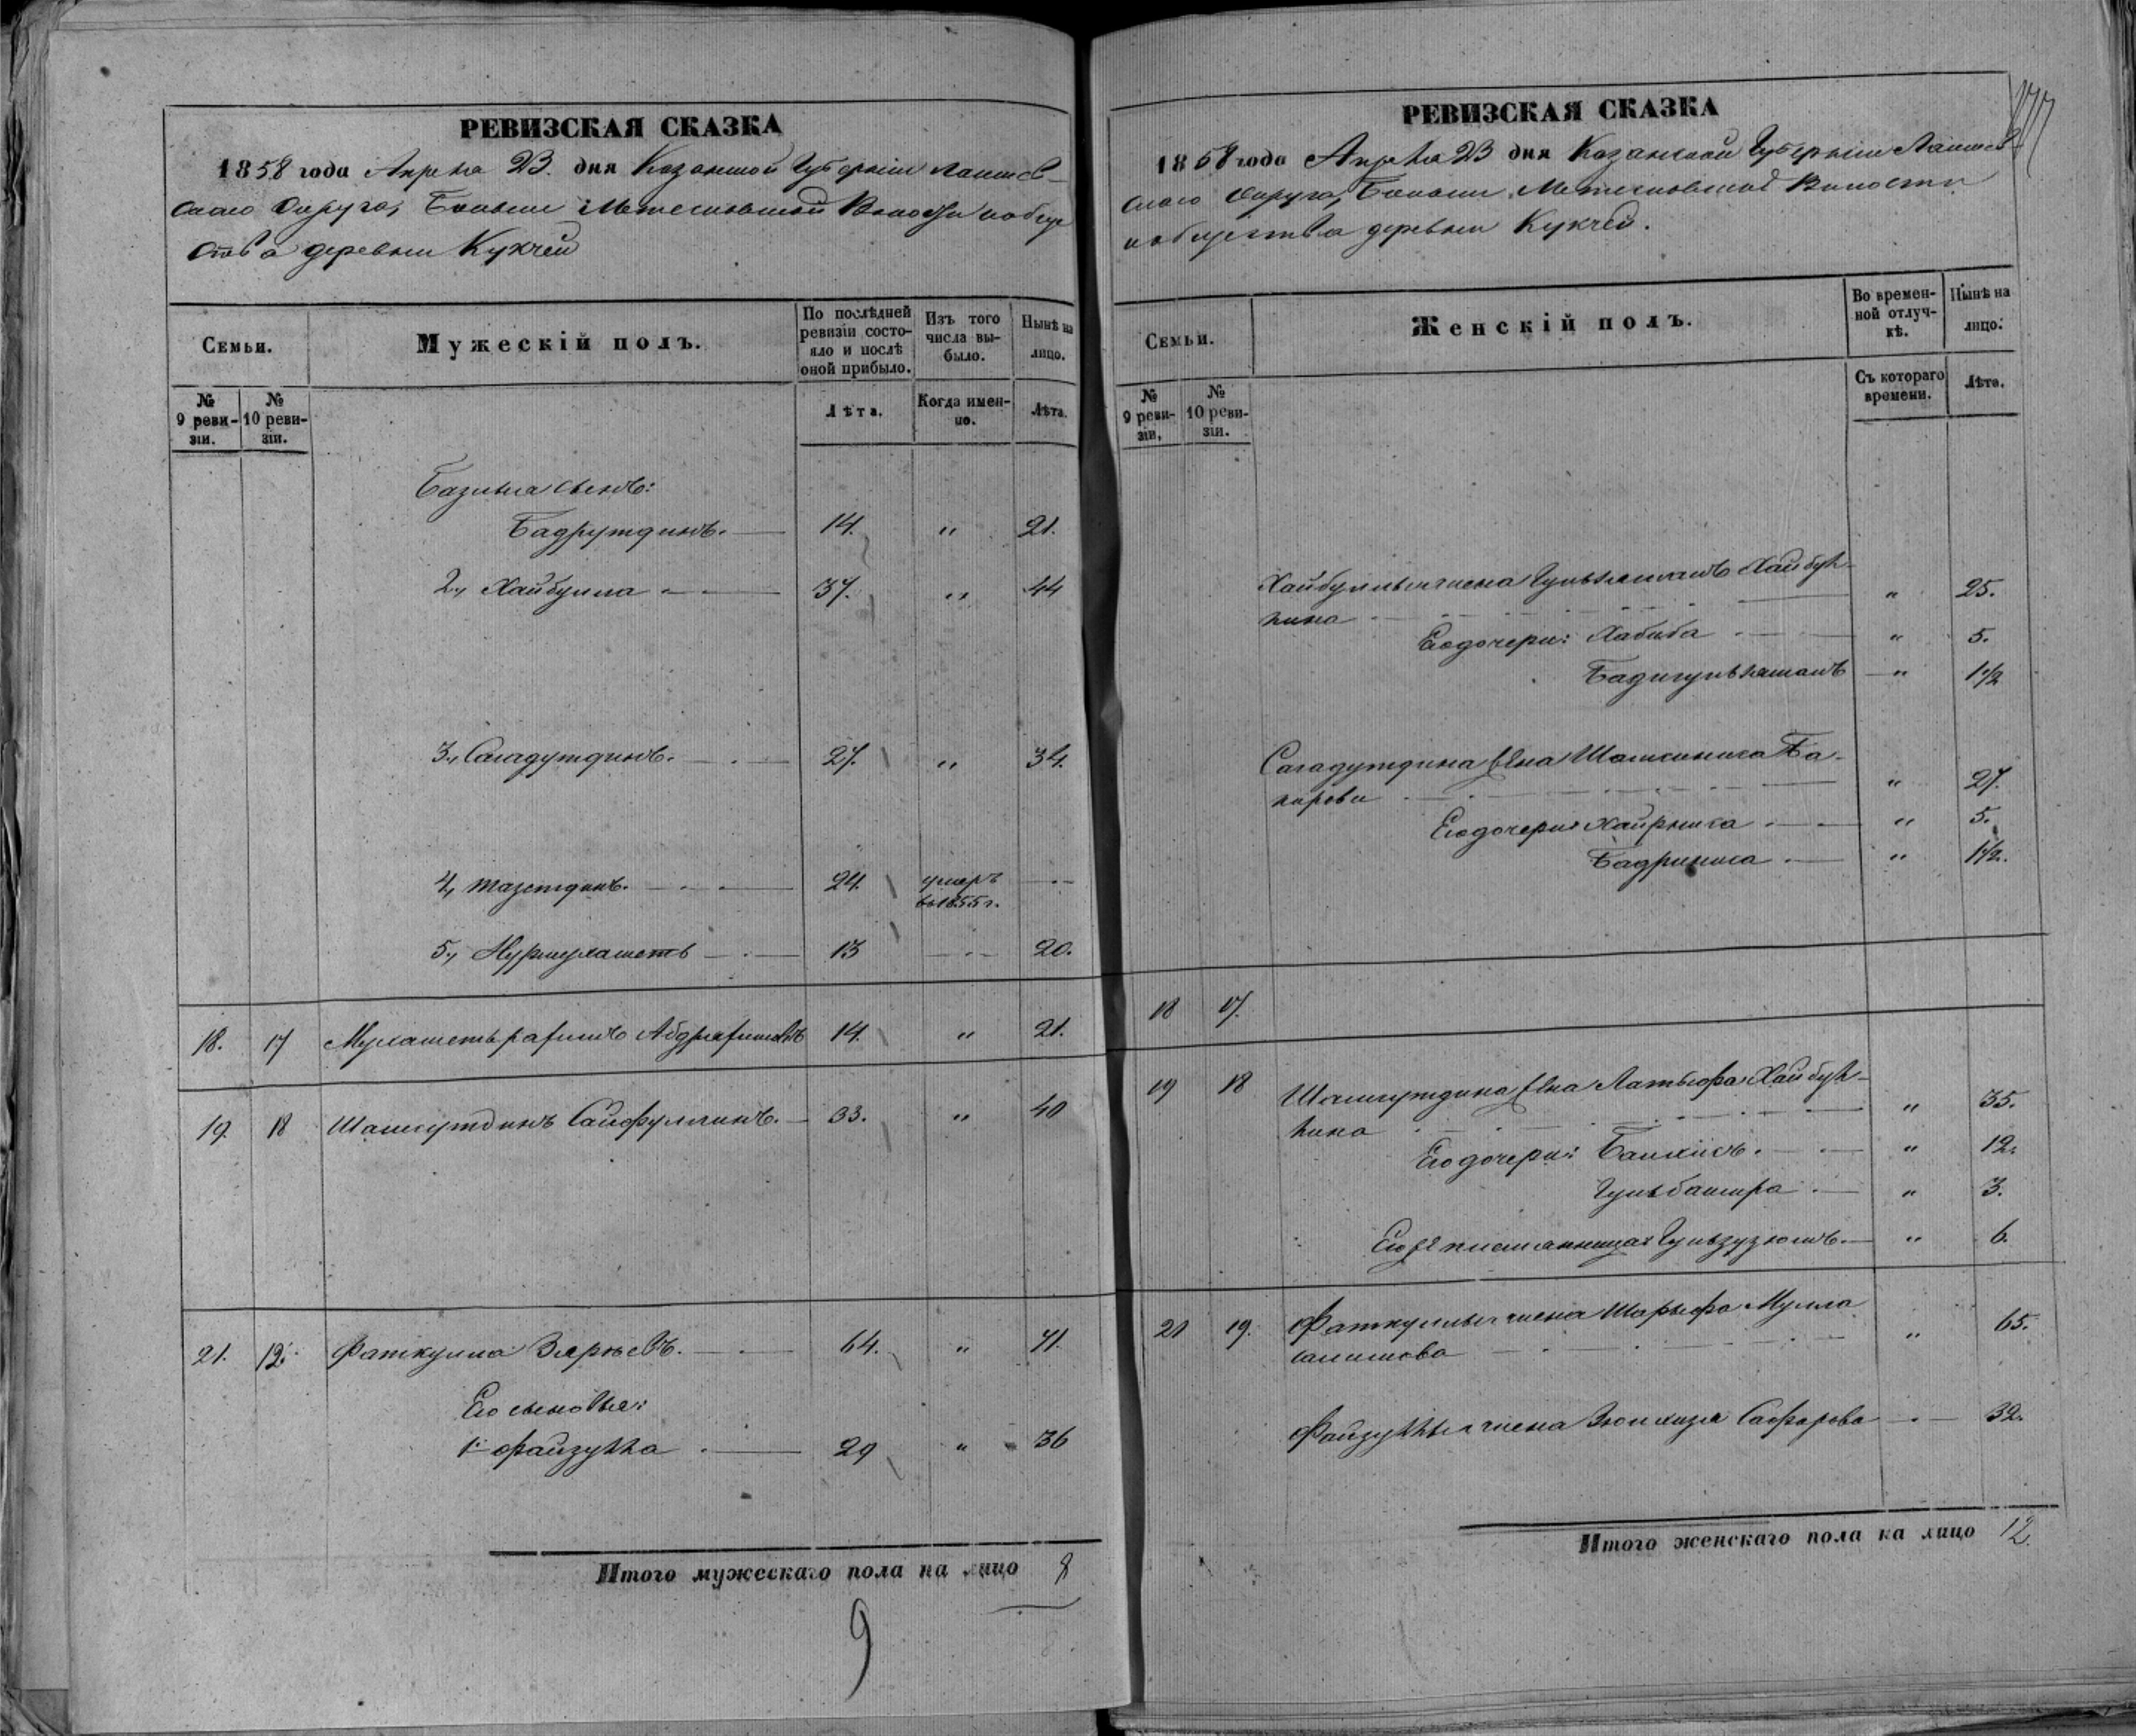 РЕВИЗСКАЯ СКАЗКА
1858 года Апреля 23. дня Казанской Губерніи Лаишев-
скаго Округа, Больше Метесковской Волости и обще
ства деревни Кукчей
Семьи.
Мужескій полъ.
По послѣдней ревизіи состояло и послѣ оной прибыло.
Изъ того числа выбыло.
Нынѣ на лицо.
№ 9 ревизіи.
№ 10 ревизіи.
Лѣта.
Когда именно.
Лѣта.
Базила сынъ:
Бадрутдинъ. 14. " 21.
2., Хайбулла 37. " 44
3., Сагадутдинъ. 27. " 34.
4., Тазетдинъ. 24. умеръ
въ 1855 г.
5., Нурмухаметь 13 20.
18. 17 Мухаметьрафикъ 14. " 21.
19. 18 Шамсутдинъ Сайфуллинъ. 33. " 40
21. 19. Фаткулла 64. " 71.
Его сыновья:
1. Файзулла 29 " 36
Итого мужескаго пола на лицо 8
9
РЕВИЗСКАЯ СКАЗКА
1858 года Апреля 23 дня Казанской Губерніи Лаишев-
скаго Округа, Больше Метесковской Волости
и общества деревни Кукчей.
Семьи.
Женскій полъ.
Во временной отлучкѣ.
Нынѣ на лицо.
№ 9 ревизіи,
№ 10 ревизіи.
Съ котораго времени.
Лѣта.
Хайбуллы жена Хайбул-
лина " 25.
Его дочери: Хабиба " 5.
" 1 1/2
Сагадутдина жена Ба-
кирова " 27.
Его дочери: Хайрниса " 5.
Бадриниса " 1 1/2.
18 17.
19 18 Шамсутдина жена Латыфа Хайбул-
лина " 35.
Его дочери: " 12.
Гульбашра " 3.
Его же племянница: " 6.
21 19. Фаткуллы жена Шарыфа Мулла
" 65.
Файзуллы жена Сафарова 32.
Итого женскаго пола на лицо 12.